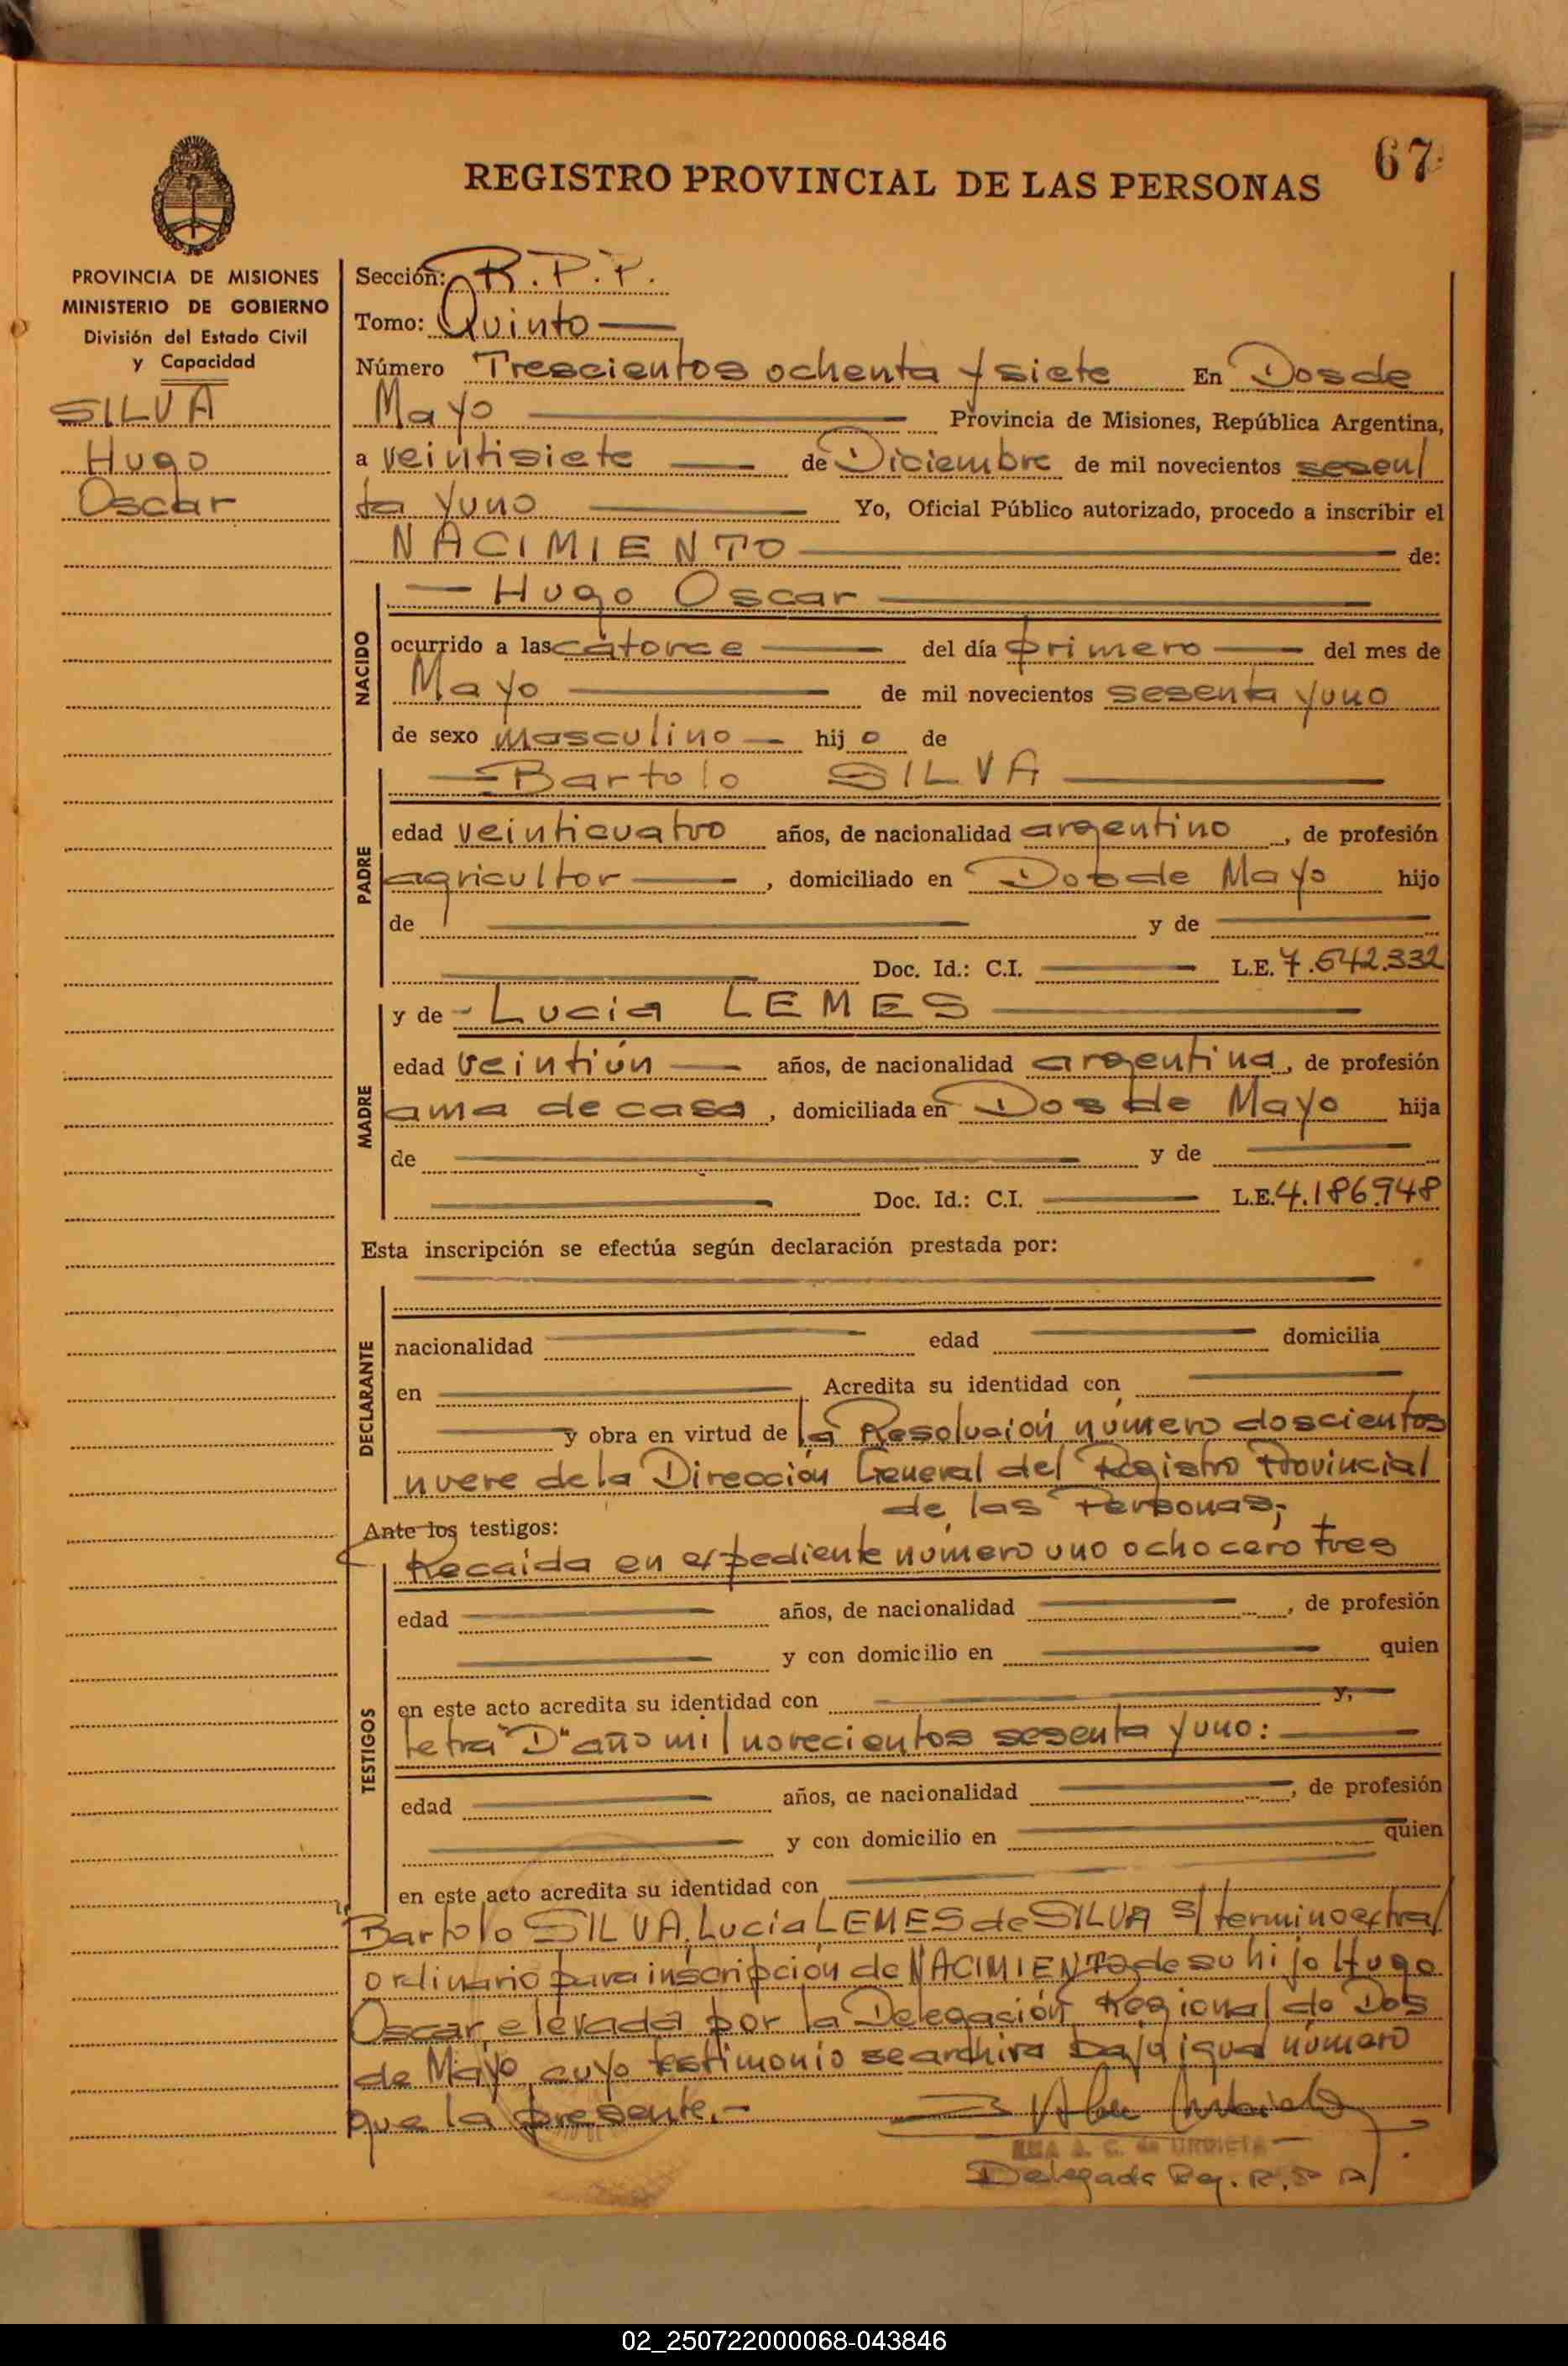 67
REGISTRO PROVINCIAL DE LAS PERSONAS
PROVINCIA DE MISIONES
MINISTERIO DE GOBIERNO
División del Estado Civil
y Capacidad
SILVA
Hugo
Oscar
Sección: R.P.P.
Tomo: Quinto
Número Trescientos ochenta y siete En Dos de
Mayo Provincia de Misiones, República Argentina,
a veintisiete de Diciembre de mil novecientos sesen/
ta y uno Yo, Oficial Público autorizado, procedo a inscribir el
NACIMIENTO de:
NACIDO
Hugo Oscar
ocurrido a las catorce del día primero del mes de
Mayo de mil novecientos sesenta y uno
de sexo masculino hij o de
PADRE
Bartolo SILVA
edad veinticuatro años, de nacionalidad argentino, de profesión
agricultor, domiciliado en Dos de Mayo hijo
de y de
Doc. Id.: C.I. L.E. 7.642.332
MADRE
y de Lucia LEMES
edad veintiún años, de nacionalidad argentina, de profesión
ama de casa, domiciliada en Dos de Mayo hija
de y de
Doc. Id.: C.I. L.E. 4.186.948
Esta inscripción se efectúa según declaración prestada por:
DECLARANTE
nacionalidad edad domicilia
en Acredita su identidad con
y obra en virtud de la Resolución número doscientos
nueve de la Dirección General del Registro Provincial
de las Personas;
Ante los testigos:
Recaida en expediente número uno ocho cero tres
TESTIGOS
edad años, de nacionalidad, de profesión
y con domicilio en quien
en este acto acredita su identidad con y,
letra "D" año mil novecientos sesenta y uno:
edad años, de nacionalidad, de profesión
y con domicilio en quien
en este acto acredita su identidad con
Bartolo SILVA, Lucia LEMES de SILVA s/termino extra/
ordinario para inscripción de NACIMIENTO de su hijo Hugo
Oscar, elevada por la Delegación Regional de Dos
de Mayo cuyo testimonio se archiva bajo igual número
que la presente.-
A. C. de URDIETA
Delegada Reg. R.P.P.
02_250722000068-043846